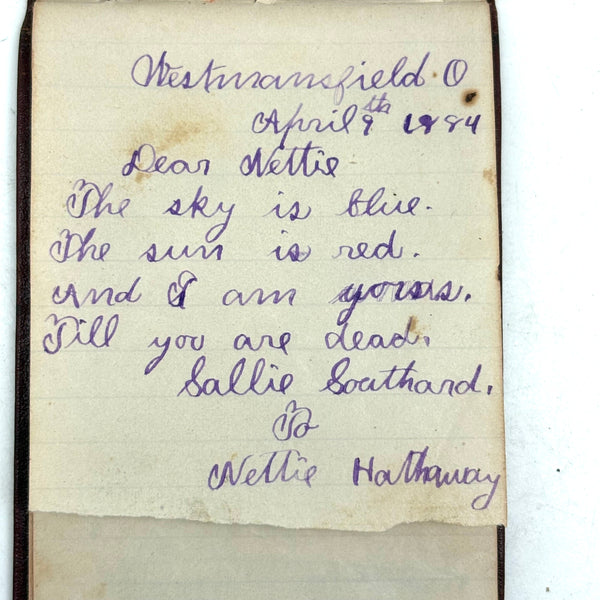 Westmansfield. O
April 9th 1884
Dear Nettie
The sky is blue.
The sun is red.
And I am yours.
Till you are dead.
Sallie Southard.
To
Nettie Hathaway